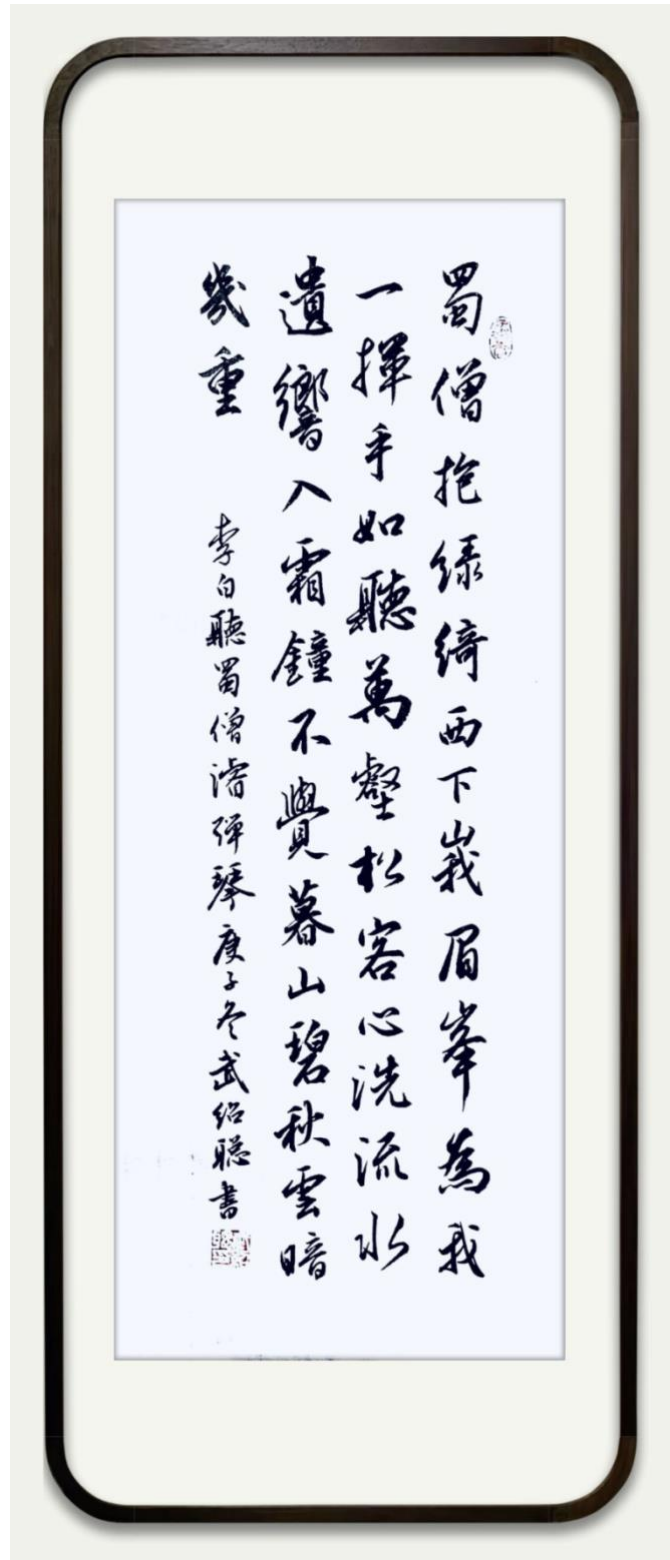 蜀僧抱綠綺西下峩眉峯為我
一揮手如聽萬壑松客心洗流水
遺響入霜鐘不覺暮山碧秋雲暗
幾重
李白聽蜀僧濬彈琴庚子冬武紹聰書